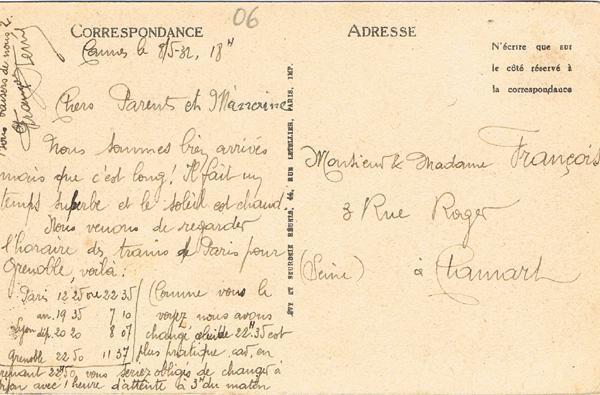 CORRESPONDANCE
06
Cannes le 8/5-32, 18H
Chers Parents et Marraine
Nous sommes bien arrivés
mais que c'est long! Il fait un
temps superbe et le soleil est chaud.
Nous venons de regarder
l'horaire des trains de Paris pour
Grenoble, voilà:
Paris 12 25 ou 22 35
Lyon arr. 19 35 7 10
dép. 20 20 8 07
Grenoble 22 50 11 37
(Comme vous le
voyez nous avons
changé celui de 22H.35 est
plus pratique car, en
prenant 22H50, vous seriez obligés de changer à
Lyon avec 1 heure d'attente à 3H du matin
Bons baisers de nous 2.
ADRESSE
N'écrire que sur
le côté réservé à
la correspondance
Monsieur & Madame François
3 Rue Roger
(Seine) à Clamart
LÉVY ET NEURDEIN RÉUNIS, 44, RUE LETELLIER, PARIS, IMP.